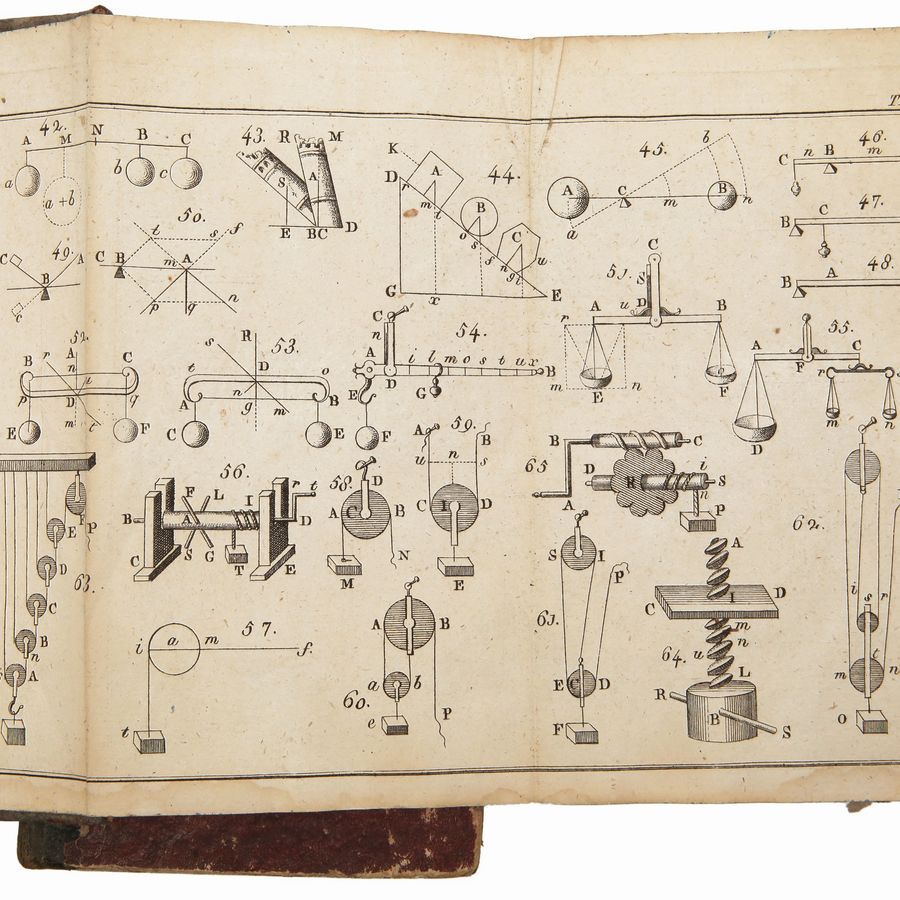 T
42.
A M N B C
a b c
a+b
43. R M
S A
E B C D
K
D A 44.
r m t B
o s f C
n g l u
G x E
45. b
A C m B n
a
46.
C n B m
47.
B C
48.
B A
49.
C A
B
c
50.
t s f
C B m A
p q n
51.
C
S
r A u D B
m E n F
52.
B r A C
n u
p D q
m t
E F
53.
s R
t D o
A n B
g m
C E
54.
C
n
A i l m o s t u x B
D
E G
F
55.
A F C
r s
m n
D
56.
F L I r t
B A D
S G
C T E
57.
i a m f.
t
58.
D
A C B
M N
59.
A B
u n s
C I D
E
60.
A B
a b
e P
61.
S I
P
E C D
F
62.
i s r
t
m n
O
63.
F P
E
D
C
B
n
A
64.
A
C I D
m
n
u
L
R B S
65
B C
D R i S
n
A P